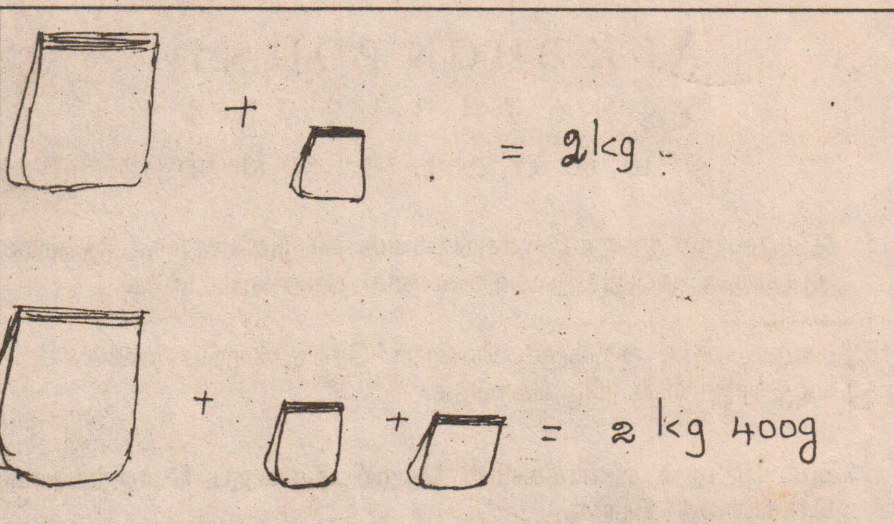 + = 2kg
+ + = 2 kg 400g